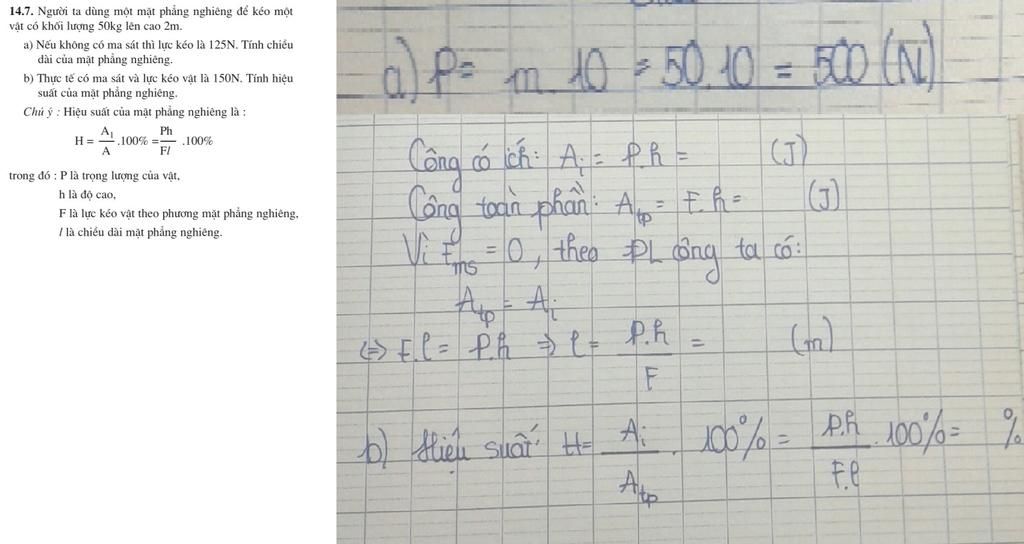 14.7. Người ta dùng một mặt phẳng nghiêng để kéo một
vật có khối lượng 50kg lên cao 2m.
a) Nếu không có ma sát thì lực kéo là 125N. Tính chiều
dài của mặt phẳng nghiêng.
b) Thực tế có ma sát và lực kéo vật là 150N. Tính hiệu
suất của mặt phẳng nghiêng.
Chú ý : Hiệu suất của mặt phẳng nghiêng là :
H = A₁/A .100% = Ph/Fl .100%
trong đó : P là trọng lượng của vật,
h là độ cao,
F là lực kéo vật theo phương mặt phẳng nghiêng,
l là chiều dài mặt phẳng nghiêng.
a) P = m 10 = 50.10 = 500 (N)
Công có ích: Aᵢ = P.h = (J)
Công toàn phần: Atp = F.h = (J)
Vì Fms = 0, theo ĐL công ta có:
Atp = Aᵢ
<=> F.l = P.h => l = P.h/F = (m)
b) Hiệu suất H = Aᵢ/Atp . 100% = P.h/F.l . 100% = %